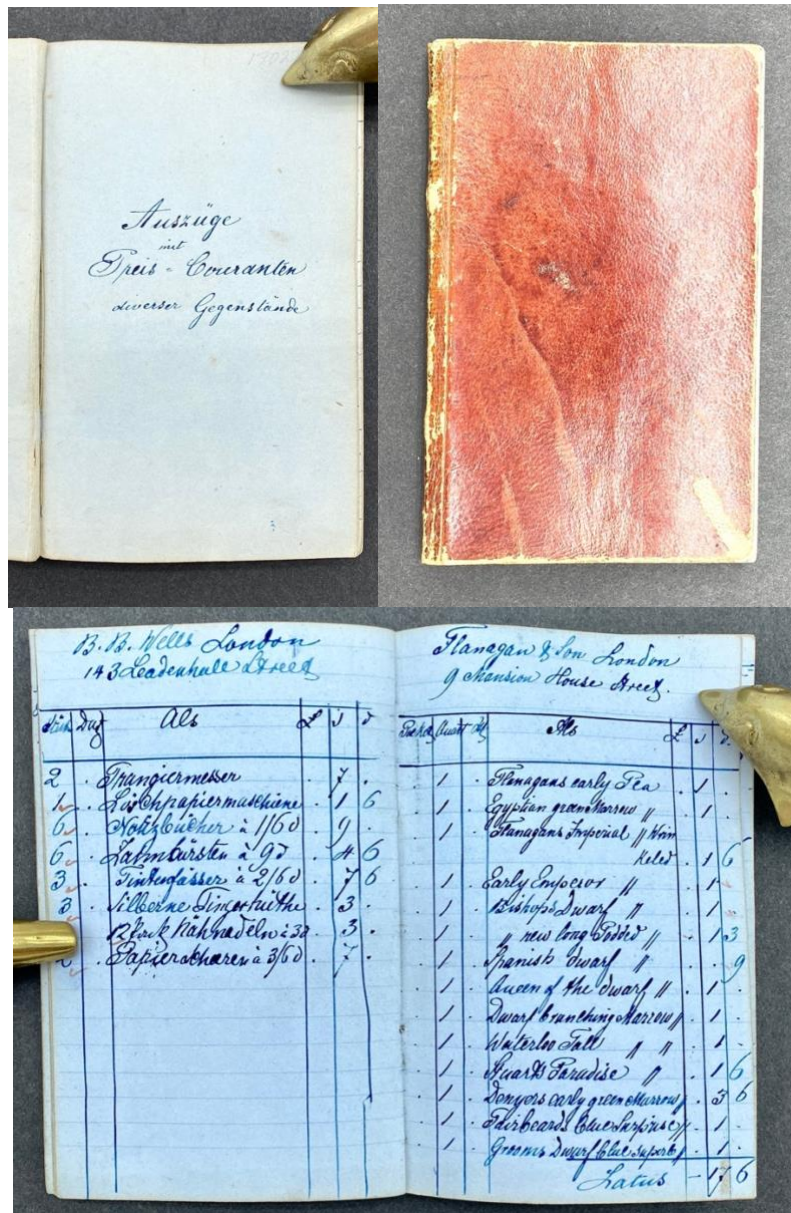 Auszüge
mit
Preis-Couranten
diverser Gegenstände
3
B. B. Wells London
143 Leadenhall Street
Stück Duz Als £ s d
2 . Trangiermesser . 7 .
1 . Löschpapiermaschiene . 1 6
6 . Notizbücher à 1/6d . 9 .
6 . Zahnbürsten à 9d . 4 6
3 . Tintenfässer à 2/6d . 7 6
3 . Silberne . 3 .
12 Nähnadeln à 3d . 3 .
. Papierscharen à 3/6d . 7 .
Flanagan & Son London
9 Mansion House Street.
Quart Als £ s d
. 1 . Flanagans early Pea . 1 .
. 1 . Egyptian green Marrow " . 1 .
. 1 . Flanagans Imperial "
. 1 6
. 1 . Early Emperor " . 1 .
. 1 . Bishops Dwarf " . 1 .
. 1 . " new long Podded " . 1 3
. 1 . Spanish dwarf " . . 9
. 1 . Queen of the dwarf " . 1 .
. 1 . Dwarf branching Marrow " . 1 .
. 1 . Waterloo Tall " " . 1 .
. 1 . Stuarts Paradise " . 1 6
. 1 . Denyers early green Marrow " . 3 6
. 1 . Fairbeards blue Surpruse " . 1 .
. 1 . Grooms Dwarf blue superb " . 1 .
Latus - 17 6